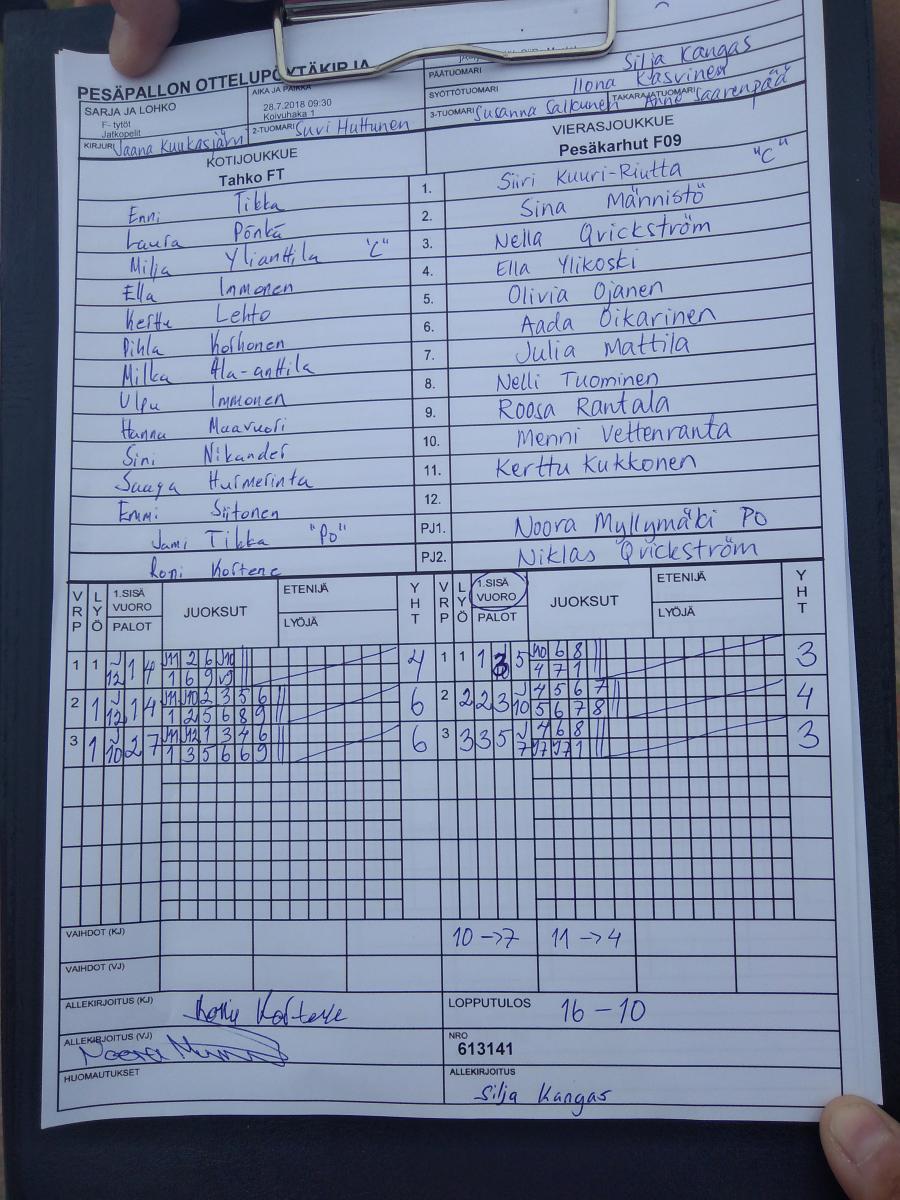 PESÄPALLON OTTELUPÖYTÄKIRJA
SARJA JA LOHKO
F- tytöt
Jatkopelit
AIKA JA PAIKKA
28.7.2018 09:30
Koivuhaka 1
PÄÄTUOMARI Silja Kangas
SYÖTTÖTUOMARI Ilona Kasvinen
KIRJURI Jaana Kuukasjärvi
2-TUOMARI Suvi Huttunen
3-TUOMARI Susanna Salkunen
TAKARAJATUOMARI Anne Saarenpää
KOTIJOUKKUE
Tahko FT
VIERASJOUKKUE
Pesäkarhut F09
Enni Tikka 1. Siiri Kuuri-Riutta "C"
Laura Pönkä 2. Sina Männistö
Milja Ylianttila "C" 3. Nella Qvickström
Ella Immonen 4. Ella Ylikoski
Kerttu Lehto 5. Olivia Ojanen
Pihla Korhonen 6. Aada Oikarinen
Milka Ala-anttila 7. Julia Mattila
Ulpu Immonen 8. Nelli Tuominen
Hanna Maavuori 9. Roosa Rantala
Sini Nikander 10. Menni Vettenranta
Saaga Hurmerinta 11. Kerttu Kukkonen
Emmi Siitonen 12.
Jami Tikka "Po" PJ1. Noora Myllymäki Po
Roni PJ2. Niklas Qvickström
VRP LYÖ 1.SISÄ VUORO PALOT JUOKSUT ETENIJÄ LYÖJÄ YHT VRP LYÖ 1.SISÄ VUORO PALOT JUOKSUT ETENIJÄ LYÖJÄ YHT
1 1 J12 1 4 J11 2 6 J10 4 1 1 1 3 5 J10 6 8 3
1 6 9 4 7 1
2 1 J12 1 4 J11 J10 2 3 5 6 6 2 2 2 3 J10 4 5 6 7 4
1 2 5 6 8 9 5 6 7 8
3 1 J10 2 7 J11 J12 1 3 4 6 6 3 3 3 5 J7 4 6 8 3
1 3 5 6 6 9
VAIHDOT (KJ) 10 → 7 11 → 4
VAIHDOT (VJ)
ALLEKIRJOITUS (KJ)
LOPPUTULOS 16 – 10
ALLEKIRJOITUS (VJ)
NRO
613141
HUOMAUTUKSET
ALLEKIRJOITUS
Silja Kangas